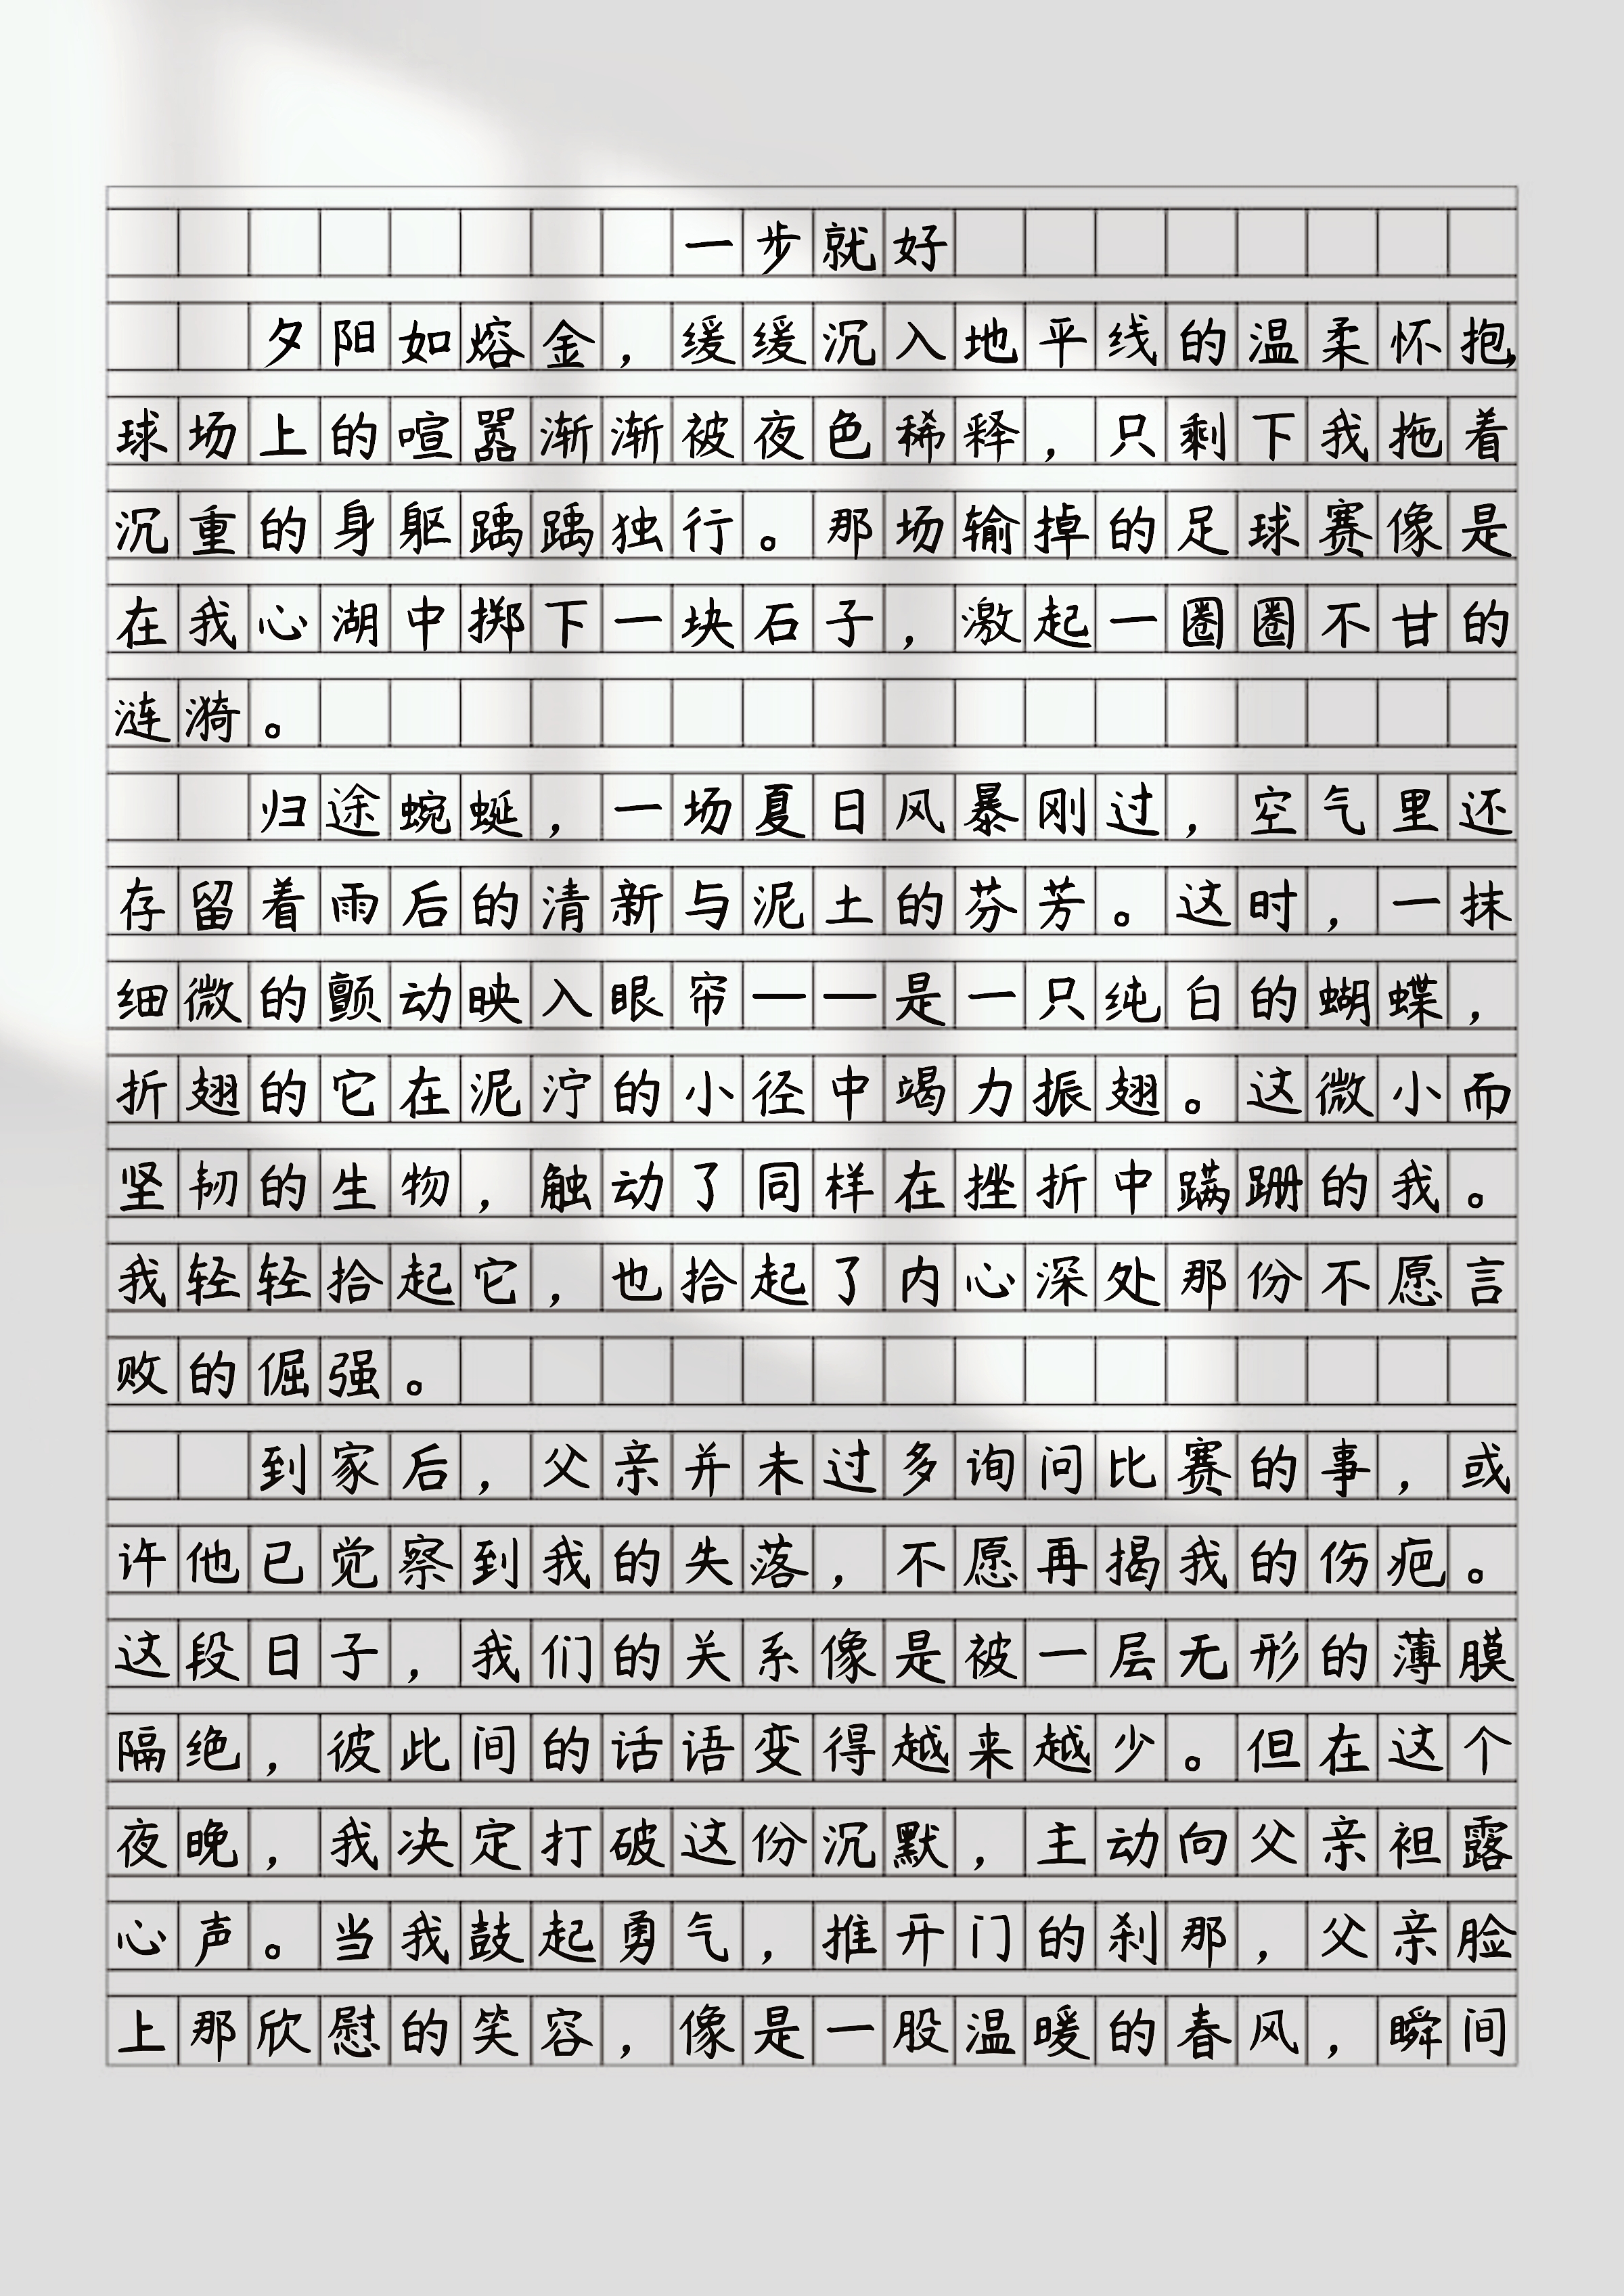 一步就好
夕阳如熔金，缓缓沉入地平线的温柔怀抱，
球场上的喧嚣渐渐被夜色稀释，只剩下我拖着
沉重的身躯踽踽独行。那场输掉的足球赛像是
在我心湖中掷下一块石子，激起一圈圈不甘的
涟漪。
归途蜿蜒，一场夏日风暴刚过，空气里还
存留着雨后的清新与泥土的芬芳。这时，一抹
细微的颤动映入眼帘——是一只纯白的蝴蝶，
折翅的它在泥泞的小径中竭力振翅。这微小而
坚韧的生物，触动了同样在挫折中蹒跚的我。
我轻轻拾起它，也拾起了内心深处那份不愿言
败的倔强。
到家后，父亲并未过多询问比赛的事，或
许他已觉察到我的失落，不愿再揭我的伤疤。
这段日子，我们的关系像是被一层无形的薄膜
隔绝，彼此间的话语变得越来越少。但在这个
夜晚，我决定打破这份沉默，主动向父亲袒露
心声。当我鼓起勇气，推开门的刹那，父亲脸
上那欣慰的笑容，像是一股温暖的春风，瞬间